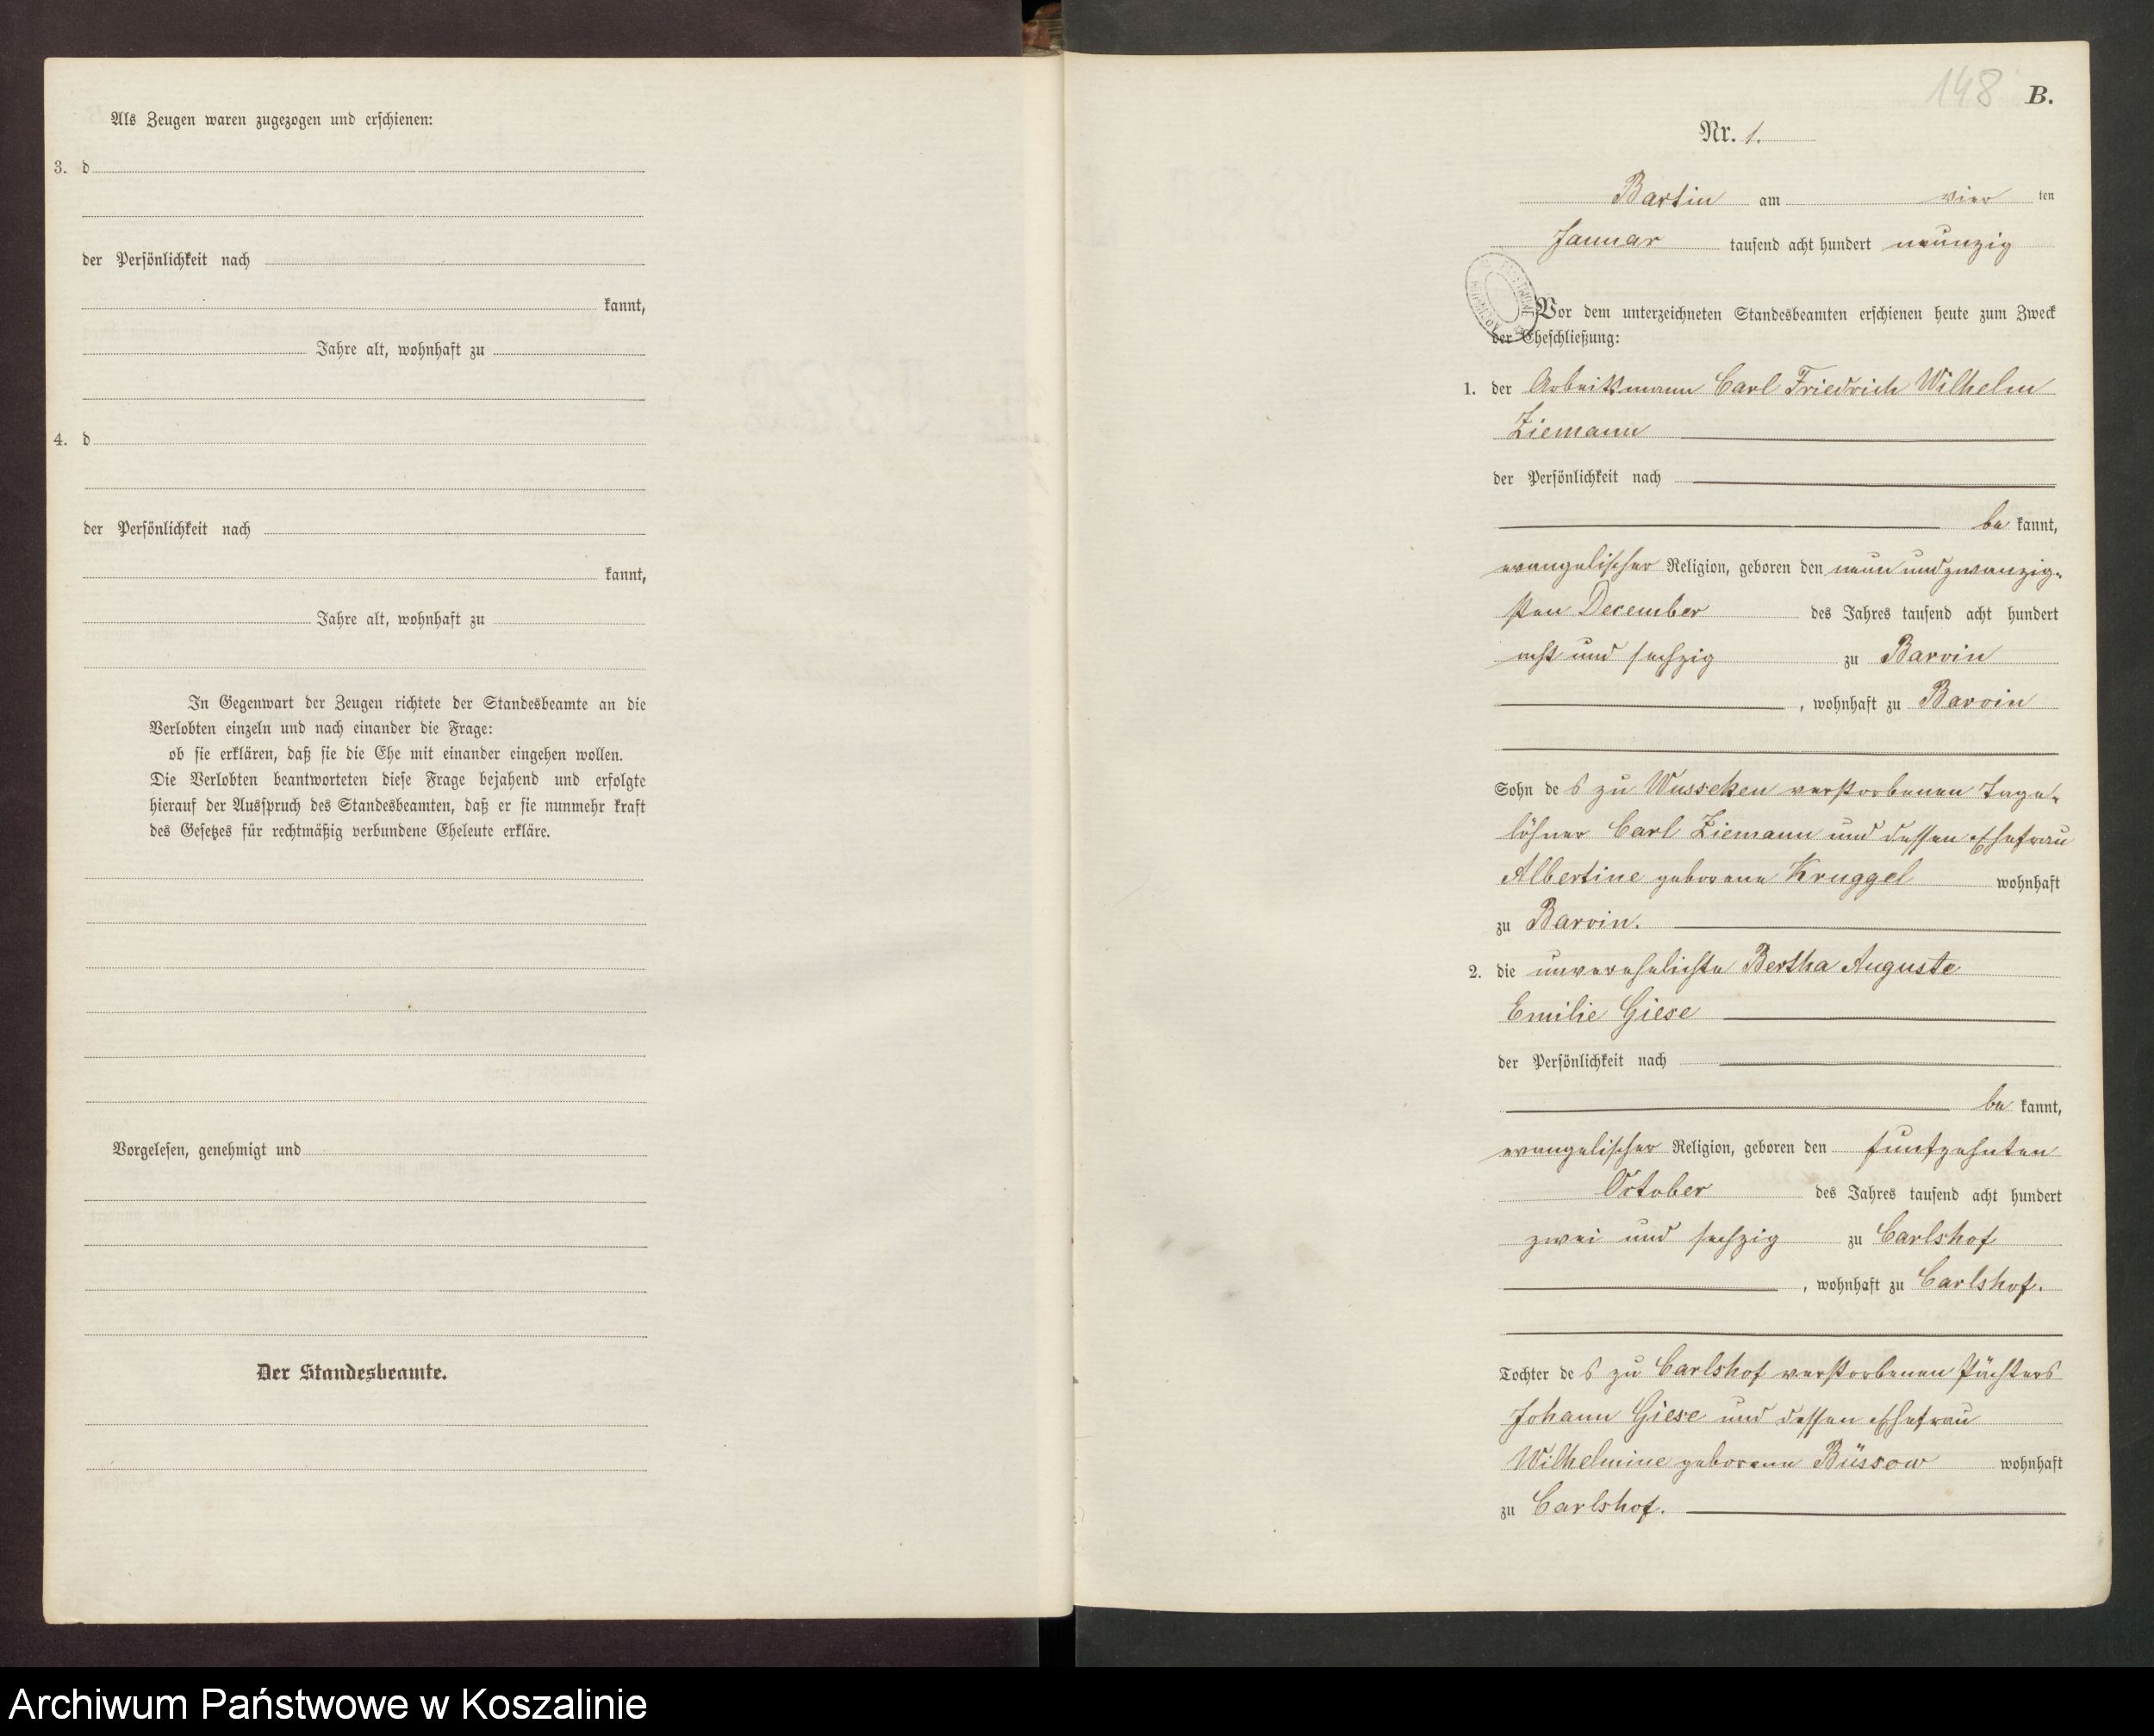 Als Zeugen waren zugezogen und erschienen:
3. d
der Persönlichkeit nach
kannt,
Jahre alt, wohnhaft zu
4. d
der Persönlichkeit nach
kannt,
Jahre alt, wohnhaft zu
In Gegenwart der Zeugen richtete der Standesbeamte an die
Verlobten einzeln und nach einander die Frage:
ob sie erklären, daß sie die Ehe mit einander eingehen wollen.
Die Verlobten beantworteten diese Frage bejahend und erfolgte
hierauf der Ausspruch des Standesbeamten, daß er sie nunmehr kraft
des Gesetzes für rechtmäßig verbundene Eheleute erkläre.
Vorgelesen, genehmigt und
Der Standesbeamte.
148 B.
Nr. 1.
Bartin am vier ten
Januar tausend acht hundert neunzig
Vor dem unterzeichneten Standesbeamten erschienen heute zum Zweck
der Eheschließung:
1. der Arbeitsmann Carl Friedrich Wilhelm
Ziemann
der Persönlichkeit nach
be kannt,
evangelischer Religion, geboren den neun und zwanzig-
sten December des Jahres tausend acht hundert
acht und sechzig zu Barvin
, wohnhaft zu Barvin
Sohn des zu Wusseken verstorbenen Tage-
löhner Carl Ziemann und dessen Ehefrau
Albertine geborene Kruggel wohnhaft
zu Barvin.
2. die unverehelichte Bertha Auguste
Emilie Giese
der Persönlichkeit nach
be kannt,
evangelischer Religion, geboren den funfzehnten
October des Jahres tausend acht hundert
zwei und sechzig zu Carlshof
, wohnhaft zu Carlshof.
Tochter des zu Carlshof verstorbenen Pächters
Johann Giese und dessen Ehefrau
Wilhelmine geborene Büssow wohnhaft
zu Carlshof.
Archiwum Państwowe w Koszalinie